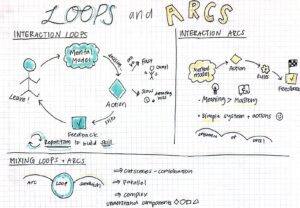 LOOPS and ARCS
INTERACTION LOOPS
Mental
Model
decision
FAST
Action
SLOW
Rules
Feedback
Learn!
Repetition to build skill
INTERACTION ARCS
Mental
model
Action
Rules
Feedback
• Meaning > Mastery
• Simple system + actions
sequence of arcs!
MIXING LOOPS + ARCS
Arc
Loop
sandwich
⇒ Cutscenes - combination
⇒ Parallel
⇒ complex
understand components